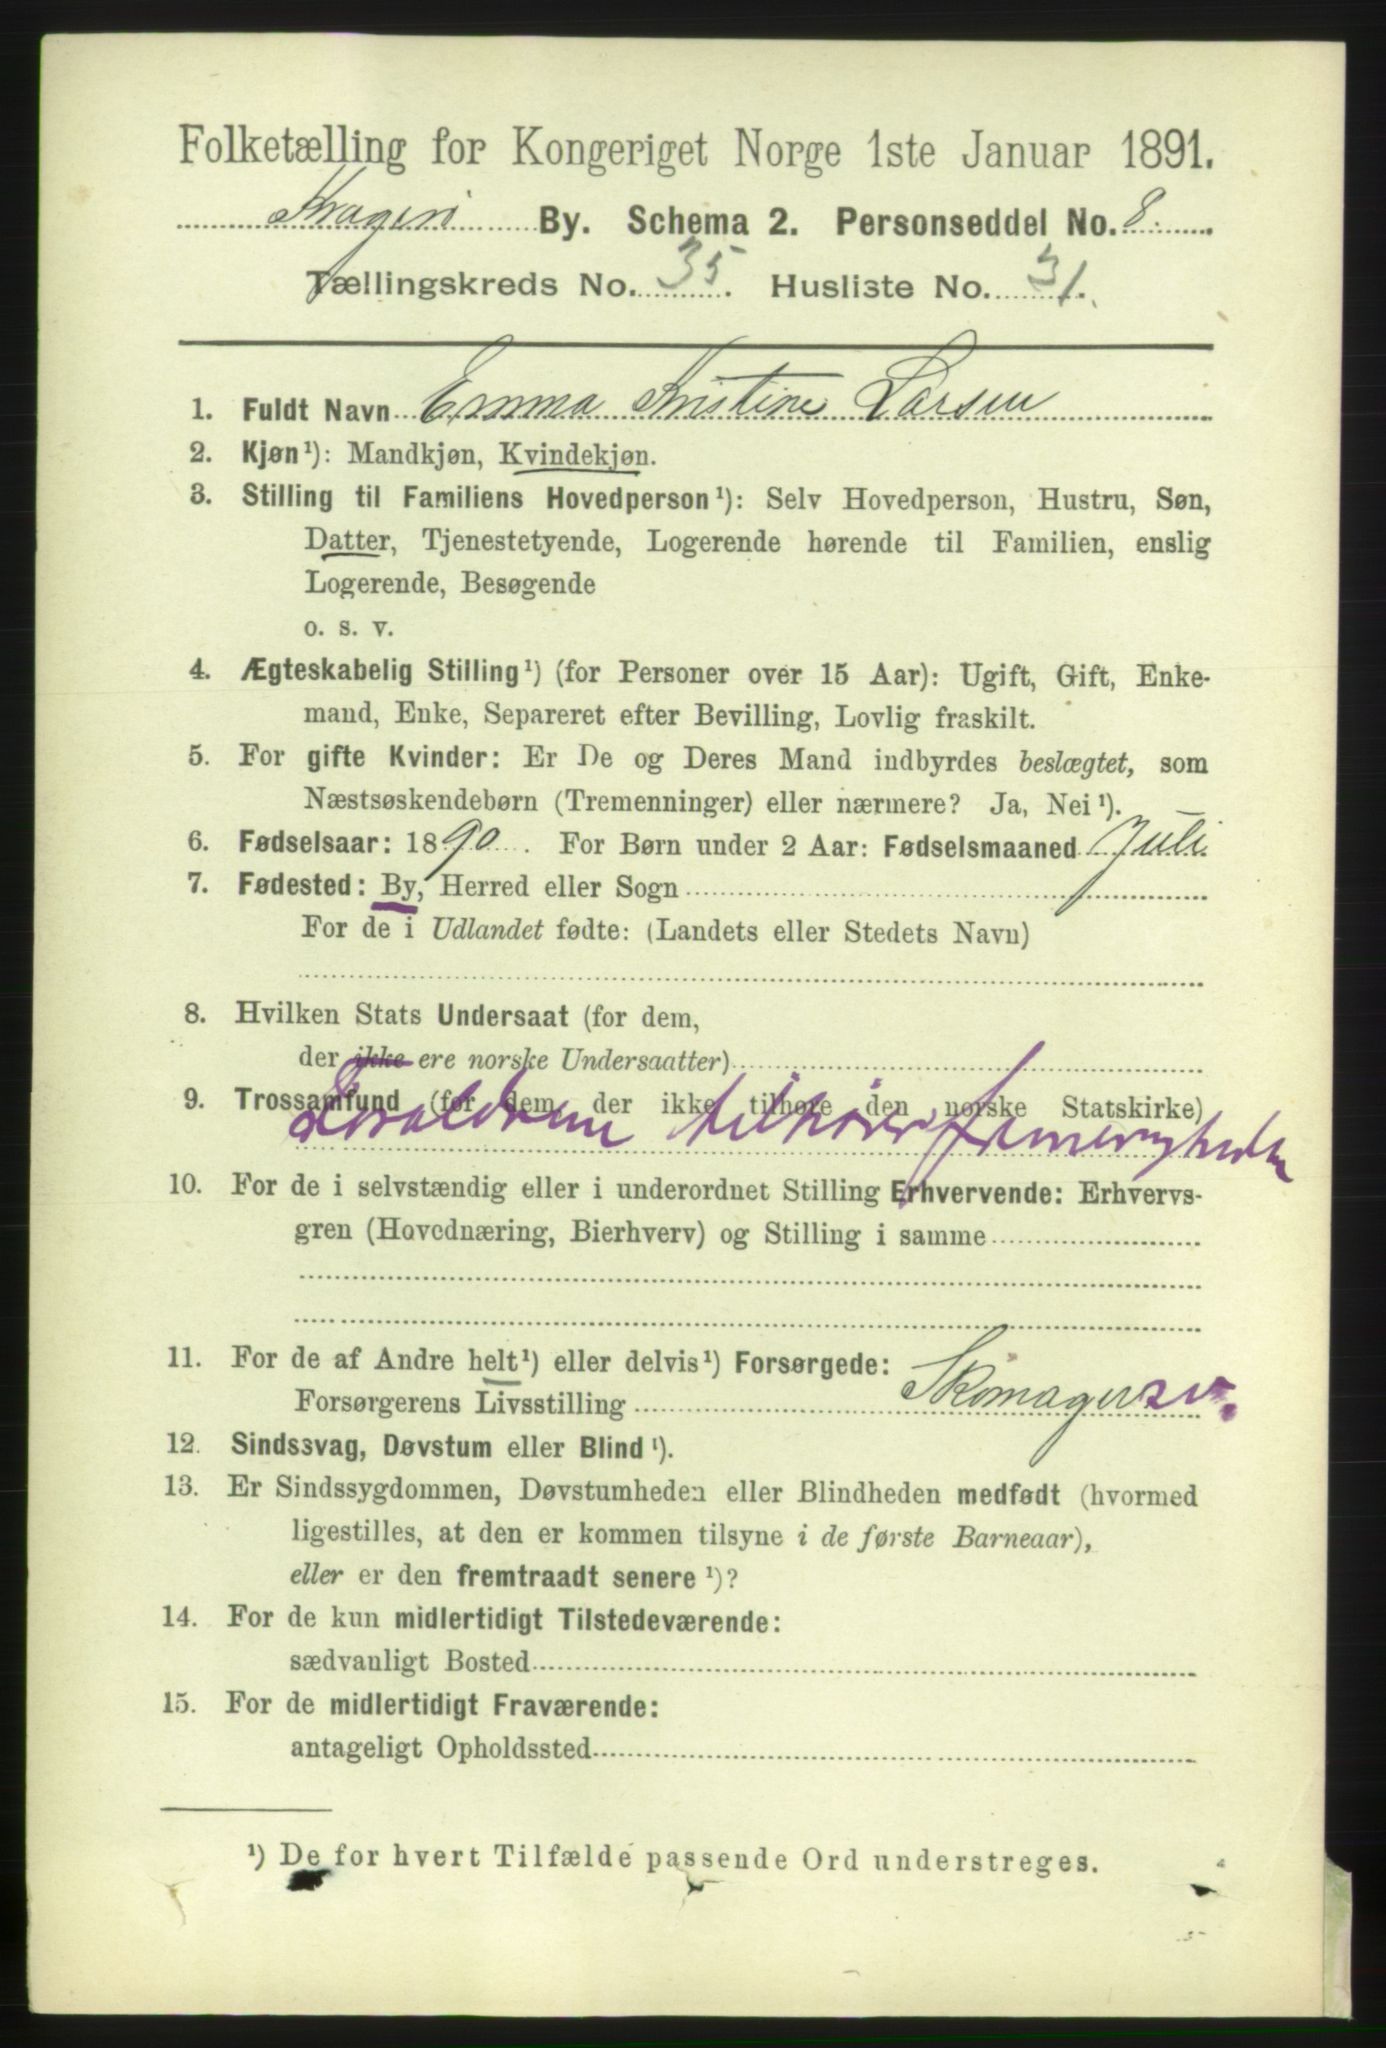 Folketælling for Kongeriget Norge 1ste Januar 1891.
Kragerö By. Schema 2. Personseddel No. 8.
Tællingskreds No. 35. Husliste No. 31.
1. Fuldt Navn Emma Kristine Larsen
2. Kjøn¹): Mandkjøn, Kvindekjøn.
3. Stilling til Familiens Hovedperson¹): Selv Hovedperson, Hustru, Søn,
Datter, Tjenestetyende, Logerende hørende til Familien, enslig
Logerende, Besøgende
o. s. v.
4. Ægteskabelig Stilling¹) (for Personer over 15 Aar): Ugift, Gift, Enke-
mand, Enke, Separeret efter Bevilling, Lovlig fraskilt.
5. For gifte Kvinder: Er De og Deres Mand indbyrdes beslægtet, som
Næstsøskendebørn (Tremenninger) eller nærmere? Ja, Nei¹).
6. Fødselsaar: 1890. For Børn under 2 Aar: Fødselsmaaned Juli.
7. Fødested: By, Herred eller Sogn
For de i Udlandet fødte: (Landets eller Stedets Navn)
8. Hvilken Stats Undersaat (for dem,
der ikke ere norske Undersaatter)
9. Trossamfund (for dem, der ikke tilhøre den norske Statskirke)
Foræld tilhører
10. For de i selvstændig eller i underordnet Stilling Erhvervende: Erhvervs-
gren (Hovednæring, Bierhverv) og Stilling i samme
11. For de af Andre helt¹) eller delvis¹) Forsørgede:
Forsørgerens Livsstilling Skomagersv.
12. Sindssvag, Døvstum eller Blind¹).
13. Er Sindssygdommen, Døvstumheden eller Blindheden medfødt (hvormed
ligestilles, at den er kommen tilsyne i de første Barneaar),
eller er den fremtraadt senere¹)?
14. For de kun midlertidigt Tilstedeværende:
sædvanligt Bosted
15. For de midlertidigt Fraværende:
antageligt Opholdssted
¹) De for hvert Tilfælde passende Ord understreges.